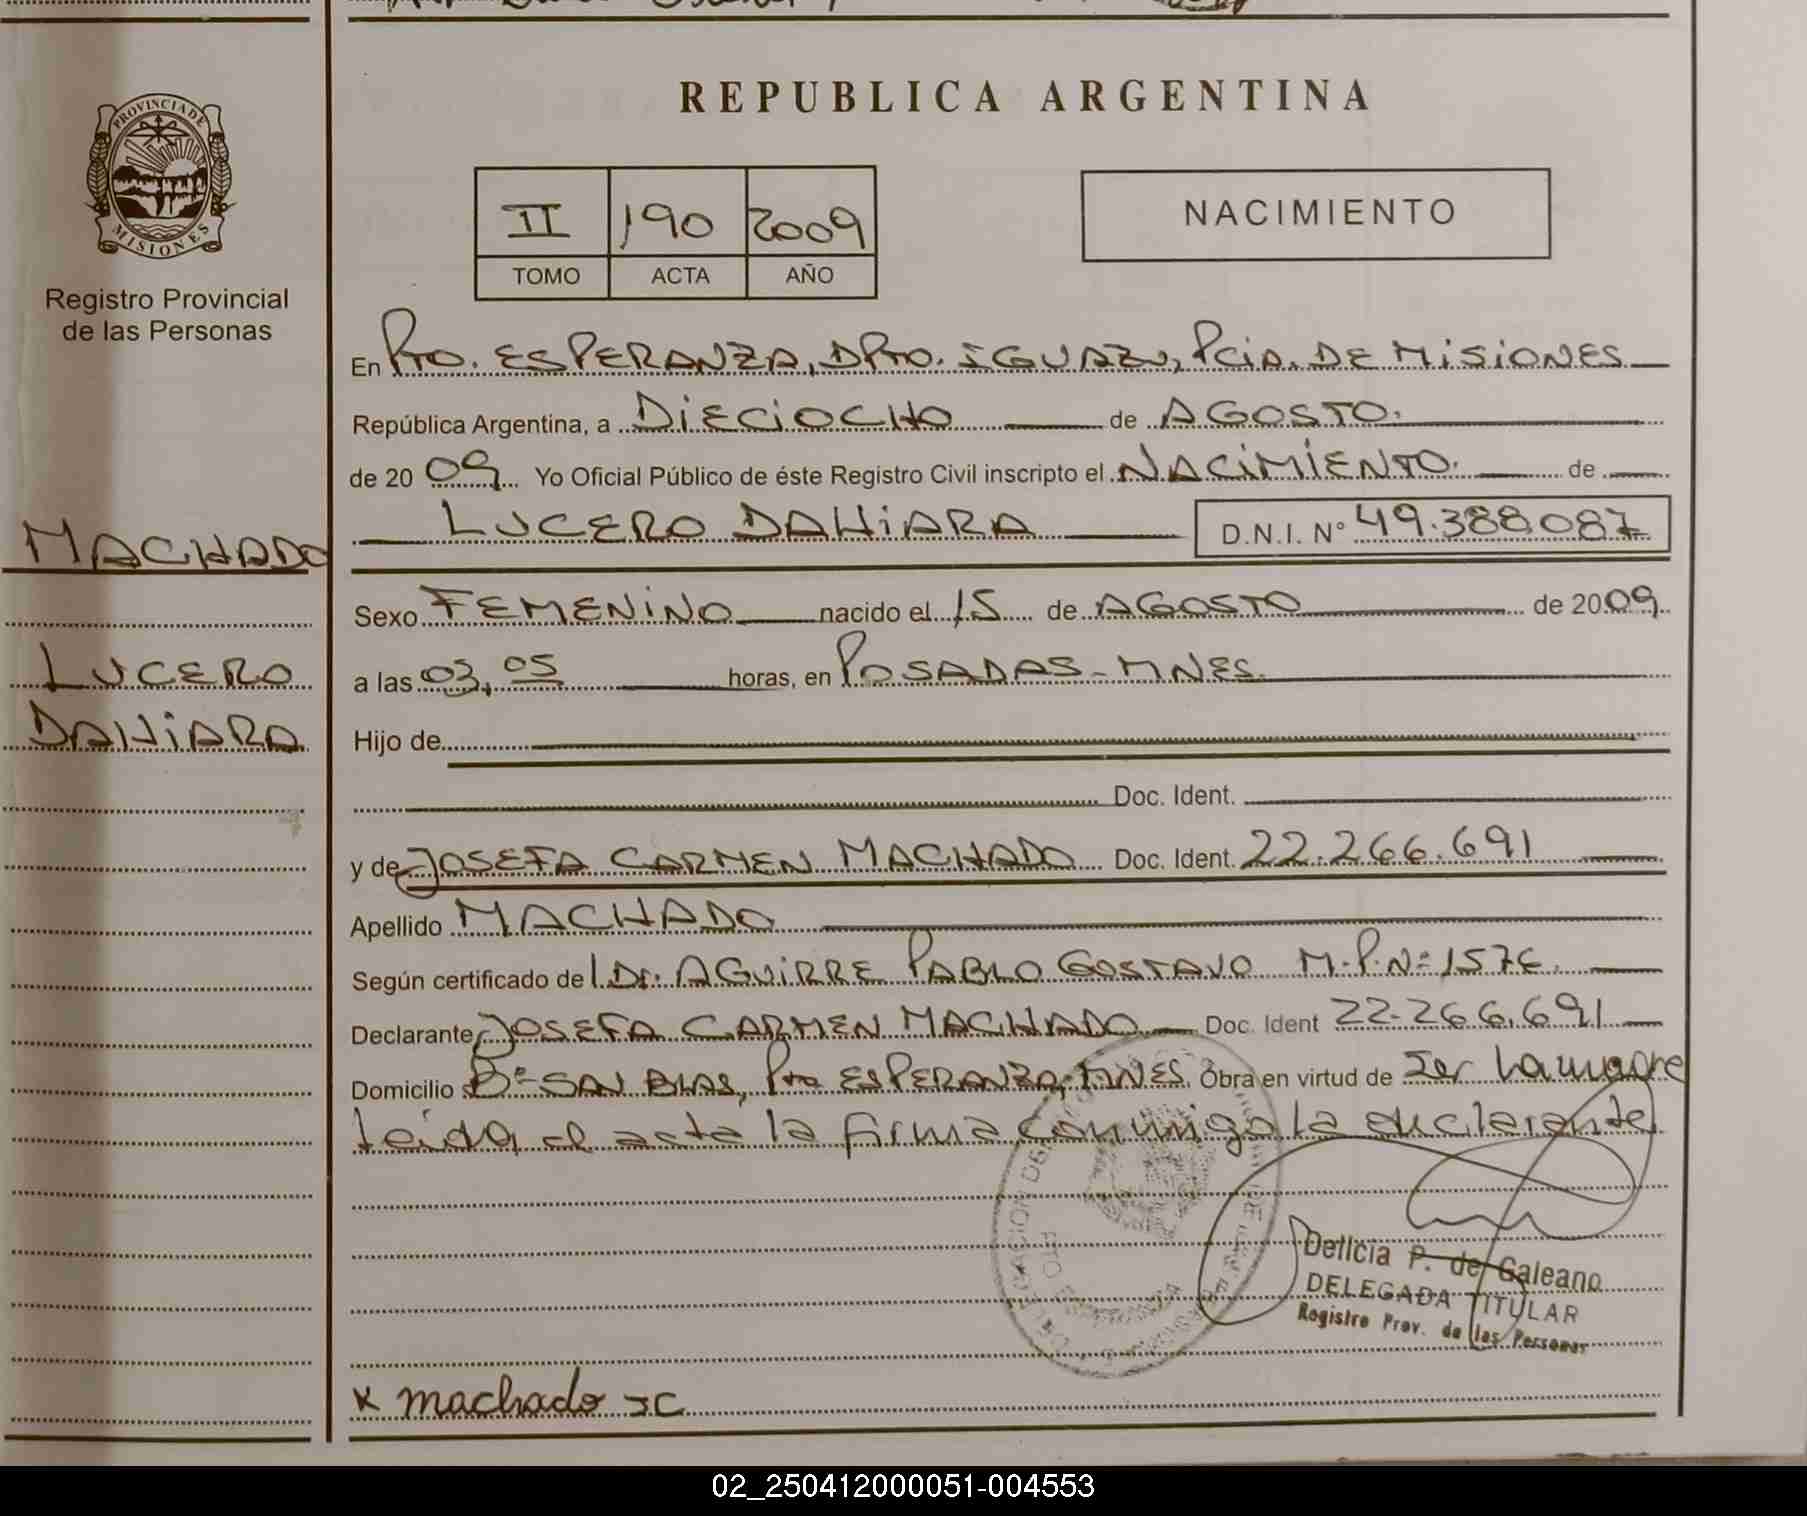 PROVINCIA DE
MISIONES
Registro Provincial
de las Personas
MACHADO
LUCERO
DAHIARA
REPUBLICA ARGENTINA
II 190 2009
TOMO ACTA AÑO
NACIMIENTO
En Pto. ESPERANZA, DPto. IGUAZU, PciA. DE MISIONES
República Argentina, a DIECIOCHO de AGOSTO.
de 20 09 Yo Oficial Público de éste Registro Civil inscripto el NACIMIENTO. de
LUCERO DAHIARA D.N.I. N° 49.388.087
Sexo FEMENINO nacido el 15 de AGOSTO de 2009
a las 03,05 horas, en POSADAS-MNES.
Hijo de
Doc. Ident.
y de JOSEFA CARMEN MACHADO Doc. Ident. 22.266.691
Apellido MACHADO
Según certificado de Dr. AGUIRRE PABLO GOSTAVO M.P.Nº 1576.
Declarante JOSEFA CARMEN MACHADO Doc. Ident 22.266.691
Domicilio Bº SAN BLAS, Pto ESPERANZA, MNES. Obra en virtud de ser la madre
Leida el acta la firma conmigo la declarante
DELEGACION DE
PTO E
Delicia P. de Galeano
DELEGADA TITULAR
Registro Prov. de las Personas
x machado JC
02_250412000051-004553